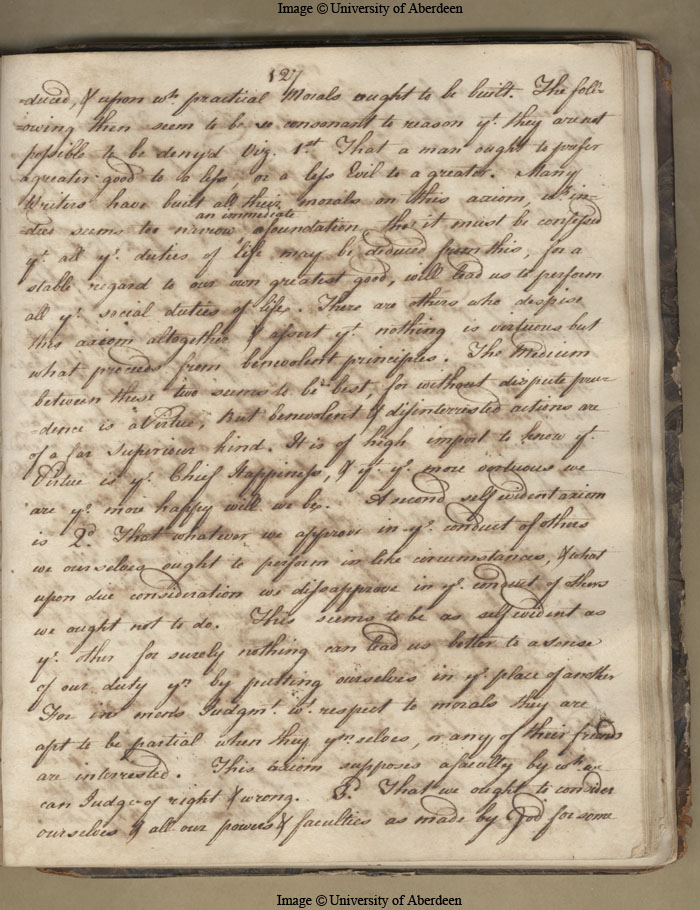 Image © University of Aberdeen
127
-duced, & upon wh. practical Morals ought to be built. The foll-
-owing then seem to be so consonant to reason yt. they are not
possible to be deny'd Viz. 1st. That a man ought to prefer
a greater good to a less, or a less Evil to a greater. Many
Writers have built all their morals on this axiom, wh. in-
-deed seems too narrow a foundation, tho' it must be confessed
an immediate
yt. all ye. duties of life may be deduced from this, for a
stable regard to our own greatest good, will lead us to perform
all ye. social duties of life. There are others who despise
this axiom altogether & assert yt. nothing is virtuous but
what proceeds from benevolent principles. The Medium
between these two seems to be best, for without dispute pru-
-dence is a Virtue, But benevolent & disinterested actions are
of a far Superiour kind. It is of high import to know yt.
Virtue is ye. Chief Happiness, & yt. ye. more virtuous we
are ye. more happy will we be. A second self evident axiom
is 2d. That whatever we approve in ye. conduct of others
we ourselves ought to perform in like circumstances, & what
upon due consideration we dissapprove in ye. conduct of others
we ought not to do. This seems to be as self evident as
ye. other for surely nothing can lead us better to a sense
of our duty yn. by putting ourselves in ye. place of another
For in men's Judgmt. wt. respect to morals they are
apt to be partial when they ymselves, or any of their friends
are interrested. This axiom supposes a faculty by wh. we
can Judge of right & wrong. 3. That we ought to consider
ourselves & all our powers & faculties as made by God for some
Image © University of Aberdeen